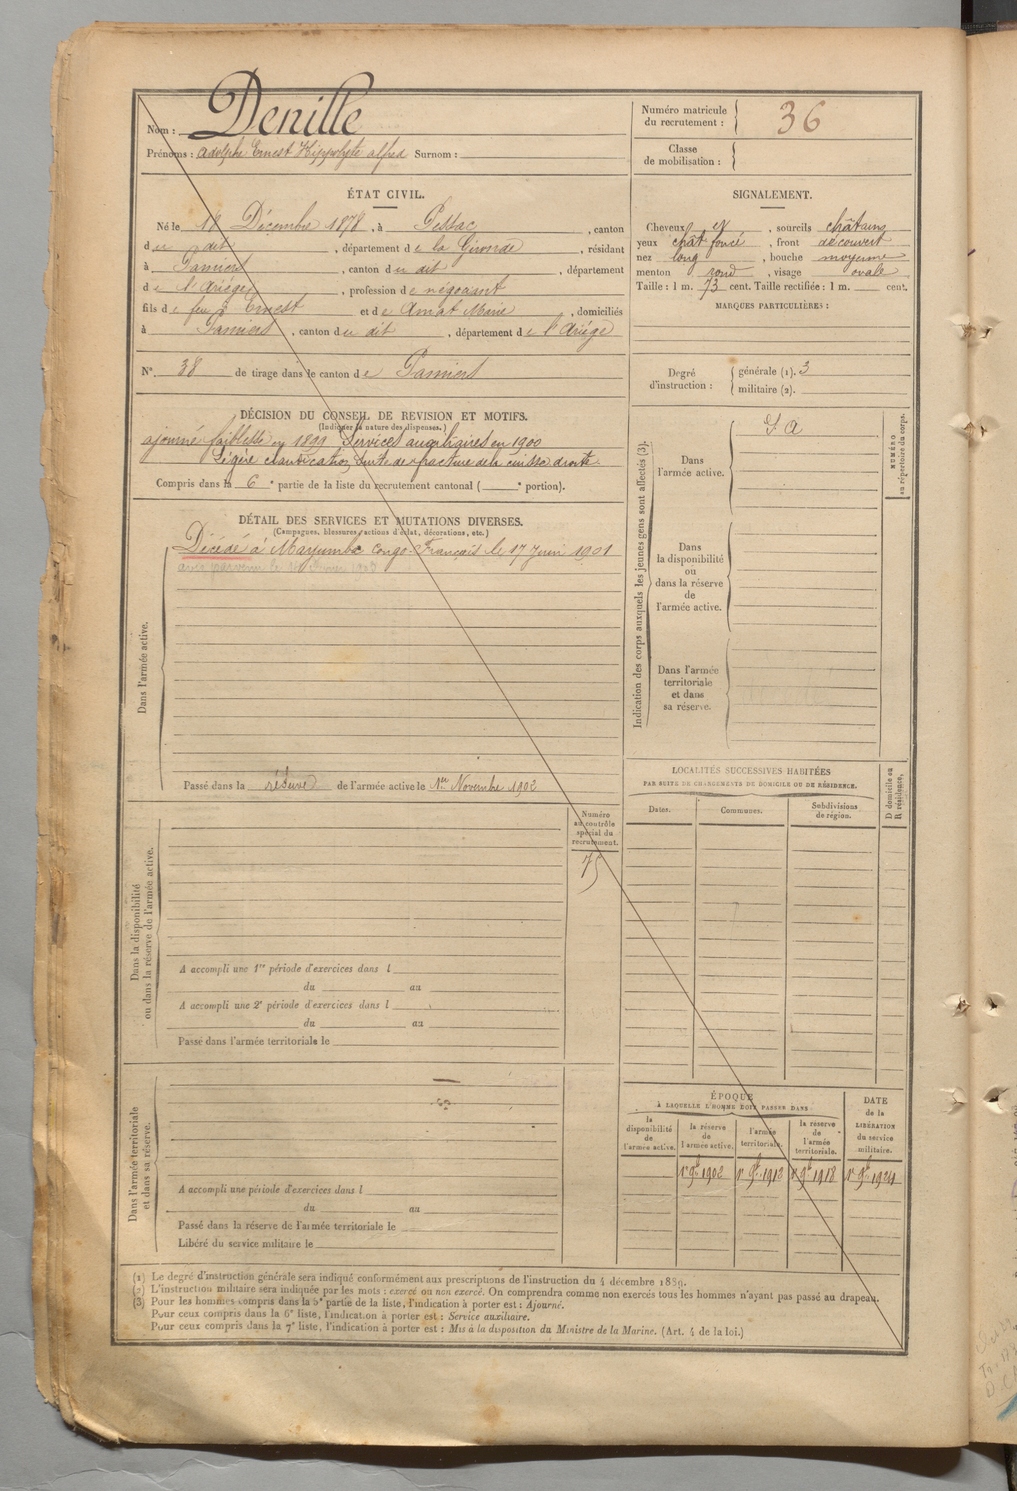 Nom : Denille
Prénoms : Adolphe Ernest Hippolyte Alfred Surnom :
Numéro matricule du recrutement : 36
Classe de mobilisation :
ÉTAT CIVIL.
Né le 18 Décembre 1878, à Pessac, canton
du dit, département de la Gironde, résidant
à Pamiers, canton du dit, département
de l'Ariège, profession de négociant
fils de feu Ernest et de Amat Marie, domiciliés
à Pamiers, canton du dit, département de l'Ariège
N° 38 de tirage dans le canton de Pamiers
SIGNALEMENT.
Cheveux et, sourcils châtains
yeux chât foncé, front découvert
nez long, bouche moyenne
menton rond, visage ovale
Taille : 1 m. 73 cent. Taille rectifiée : 1 m. cent.
MARQUES PARTICULIÈRES :
Degré d'instruction : générale (1). 3
militaire (2).
DÉCISION DU CONSEIL DE REVISION ET MOTIFS.
(Indiquer la nature des dispenses.)
ajourné faiblesse en 1899 Services auxiliaires en 1900
Légère claudication, suite de fracture de la cuisse droite.
Compris dans la 6e partie de la liste du recrutement cantonal ( e portion).
DÉTAIL DES SERVICES ET MUTATIONS DIVERSES.
(Campagnes, blessures, actions d'éclat, décorations, etc.)
Décédé à Mayumba Congo-Français le 17 Juin 1901
Dans l'armée active.
Passé dans la réserve de l'armée active le 1er Novembre 1902
Indication des corps auxquels les jeunes gens sont affectés (3).
Dans l'armée active. S. A
Dans la disponibilité ou dans la réserve de l'armée active.
Dans l'armée territoriale et dans sa réserve.
NUMÉRO au répertoire du corps.
LOCALITÉS SUCCESSIVES HABITÉES
PAR SUITE DE CHANGEMENTS DE DOMICILE OU DE RÉSIDENCE.
Dates. Communes. Subdivisions de région.
D domicile ou R résidence.
Numéro au contrôle spécial du recrutement.
75
Dans la disponibilité ou dans la réserve de l'armée active.
A accompli une 1re période d'exercices dans l
du au
A accompli une 2e période d'exercices dans l
du au
Passé dans l'armée territoriale le
Dans l'armée territoriale et dans sa réserve.
A accompli une période d'exercices dans l
du au
Passé dans la réserve de l'armée territoriale le
Libéré du service militaire le
ÉPOQUE
À LAQUELLE L'HOMME DOIT PASSER DANS
la disponibilité de l'armée active. la réserve de l'armée active. l'armée territoriale. la réserve de l'armée territoriale.
DATE de la LIBÉRATION du service militaire.
1r 9bre 1902 1r 9bre 1912 1r 9bre 1918 1r 9bre 1924
(1) Le degré d'instruction générale sera indiqué conformément aux prescriptions de l'instruction du 4 décembre 1889.
(2) L'instruction militaire sera indiquée par les mots : exercé ou non exercé. On comprendra comme non exercés tous les hommes n'ayant pas passé au drapeau.
(3) Pour les hommes compris dans la 5e partie de la liste, l'indication à porter est : Ajourné.
Pour ceux compris dans la 6e liste, l'indication à porter est : Service auxiliaire.
Pour ceux compris dans la 7e liste, l'indication à porter est : Mis à la disposition du Ministre de la Marine. (Art. 4 de la loi.)